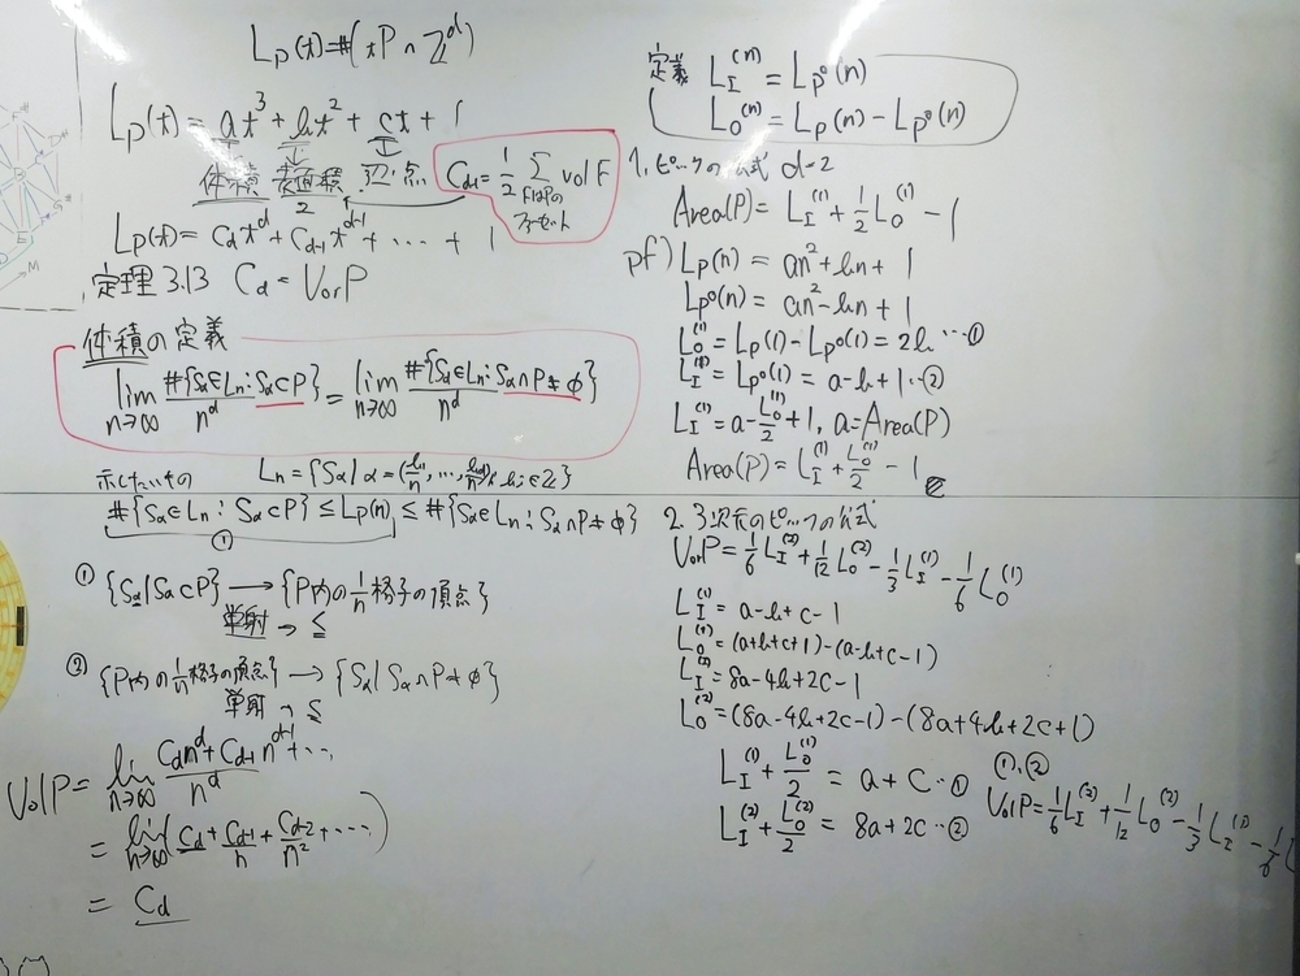 L_P(t)=#(tP∩ℤ^d)
L_P(t) = at³ + bt² + ct + 1
体積 表面積/2 辺・点
C_{d-1} = 1/2 Σ vol F
FはPのファセット
L_P(t) = C_d t^d + C_{d-1} t^{d-1} + ... + 1
定理 3.13 C_d = Vol P
体積の定義
lim_{n→∞} #{S_α∈L_n : S_α⊂P}/n^d = lim_{n→∞} #{S_α∈L_n : S_α∩P≠φ}/n^d
示したいもの
#{S_α∈L_n : S_α⊂P} ≤ L_P(n) ≤ #{S_α∈L_n : S_α∩P≠φ}
①
① {S_α|S_α⊂P} → {P内の1/n格子の頂点}
単射 → ≤
② {P内の1/n格子の頂点} → {S_α | S_α∩P≠φ}
単射 → ≤
Vol P = lim_{n→∞} (C_d n^d + C_{d-1} n^{d-1} + ...)/n^d
= lim_{n→∞} (C_d + C_{d-1}/n + C_{d-2}/n² + ...)
= C_d
定義 L_I^(n) = L_{P°}(n)
L_O^(n) = L_P(n) - L_{P°}(n)
1. ピックの公式 d=2
Area(P) = L_I^(1) + 1/2 L_O^(1) - 1
pf) L_P(n) = an² + bn + 1
L_{P°}(n) = an² - bn + 1
L_O^(1) = L_P(1) - L_{P°}(1) = 2b ...①
L_I^(1) = L_{P°}(1) = a - b + 1 ..②
L_I^(1) = a - L_O^(1)/2 + 1, a = Area(P)
Area(P) = L_I^(1) + L_O^(1)/2 - 1
2. 3次元のピックの公式
Vol P = 1/6 L_I^(2) + 1/12 L_O^(2) - 1/3 L_I^(1) - 1/6 L_O^(1)
L_I^(1) = a - b + c - 1
L_O^(1) = (a+b+c+1) - (a-b+c-1)
L_I^(2) = 8a - 4b + 2c - 1
L_O^(2) = (8a-4b+2c-1) - (8a+4b+2c+1)
L_I^(1) + L_O^(1)/2 = a + c ..①
L_I^(2) + L_O^(2)/2 = 8a + 2c ..②
①,②
Vol P = 1/6 L_I^(2) + 1/12 L_O^(2) - 1/3 L_I^(1) - 1/6 L
M